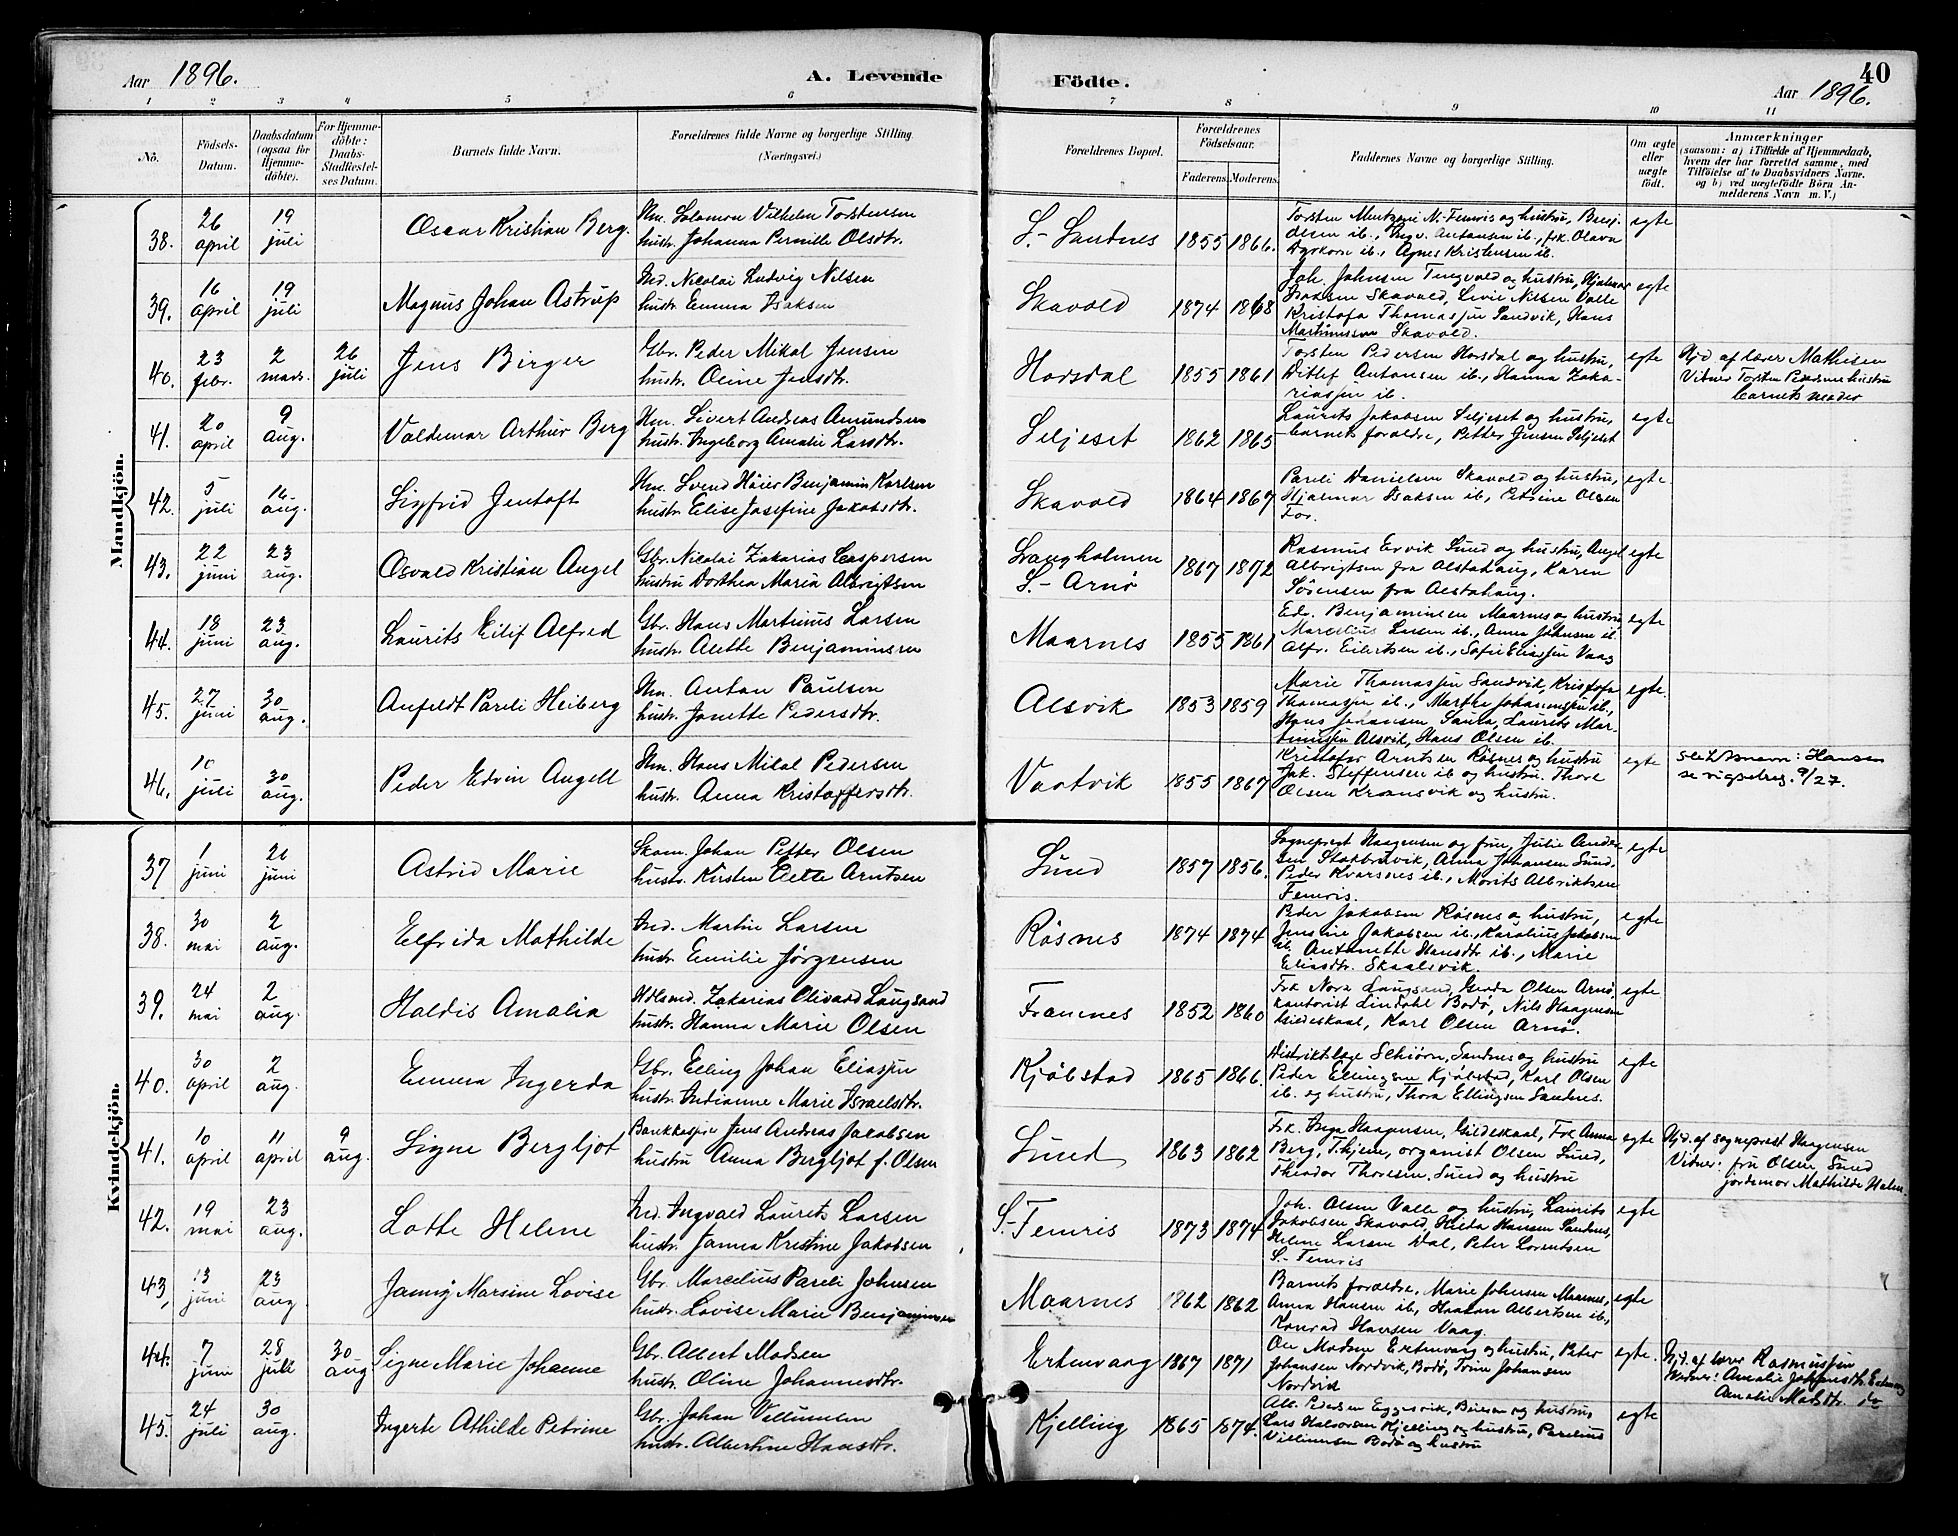 Aar 1896.
A. Levende
Födte.
40
Aar 1896.
1 2 3 4 5 6 7 8 9 10 11
No.
Födsels-Datum.
Daabsdatum (ogsaa for Hjemme-döbte).
For Hjemme-döbte: Daabs-Stadfæstel-ses Datum.
Barnets fulde Navn.
Forældrenes fulde Navne og borgerlige Stilling. (Næringsvei.)
Forældrenes Bopæl.
Forældrenes Födselsaar.
Faderens. Moderens.
Faddernes Navne og borgerlige Stilling.
Om ægte eller uægte födt.
Anmærkninger
(saasom: a) i Tilfælde af Hjemmedaab,
hvem der har forrettet samme, med
Tilföielse af to Daabsvidners Navne,
og b) ved uægtefödte Börn An-
melderens Navn m. V.)
Mandkjön.
38. 26 april 19 juli Oscar Kristian Berg. Hm. Solomon Vilhelm Torstensen
hustr. Johanna Pernille Olsdtr.
S.-Sandnes 1855 1866. Torsten Mentzoni N.-Femris og hustru,
olsen ib., Ingv. Antonsen ib., frk. Olava
Dyrkorn ib., Agnes Kristensen ib.
egte
39. 16 april 19 juli Magnus Johan Astrup Ind. Nicolai Ludvig Nilsen
hustr. Emma Isaksen
Skavold 1874 1868 Joh. Johnsen Tengvold og hustru, Hjalmar
Isaksen Skavold, Nilsen Valle
Kristofa Thomasjen Sandvik, Hans
Martinussen Skavold.
egte
40. 23 febr. 2 mars. 26 juli Jens Birger Gbr. Peder Mikal Jensen
hustr. Oline Jensdtr.
Horsdal 1855 1861 Torsten Pedersen Horsdal og hustru,
Ditlef Antonsen ib., Hanna Zaka-
riasjen ib.
egte Hjd. af lærer Mathisen
Vidner Torsten Pedersens hustru
barnets moder
41. 20 april 9 aug. Valdemar Arthur Berg Hm. Sivert Andreas Amundsen
hustr. Ingeborg Amalie Larsdtr.
Seljeset 1862 1865 Laurits Jakobsen Seljeset og hustru,
barnets foræeldre, Petter Jensen Seljeset
egte
42. 5 juli 16 aug. Sigfrid Jentoft Hm. Svend Høier Benjamin Karlsen
hustr. Elise Josefine Jakobsdtr.
Skavold 1864 1867 Pareli Danielsen Skavold og hustru,
Hjalmar Isaksen ib., Petrine Olsen
For.
egte.
43. 22 juni 23 aug. Osvald Kristian Angel Gbr. Nicolai Zakarias Caspersen
hustru Dorthea Maria Albrigtsen
Langholmen
S.-Arnø 1867 1872 Rasmus Ervik Sund og hustru, Angel
Albrigtsen fra Alstahaug, Karen
Sørensen fra Alstahaug.
egte
44. 18 juni 23 aug. Laurits Eilif Alfred Gbr. Hans Martinus Larsen
hustr. Anette Benjaminsen
Maarnes 1855 1861 Edv. Benjaminsen Maarnes og hustru
Marcelius Larsen ib., Anna Johnsen ib
Alfr. Eilertsen ib., Sofie Eliasjen Vaag
egte
45. 27 juni 30 aug. Anfeldt Pareli Heiberg Hm. Anton Paulsen
hustr. Jonette Pedersdtr.
Alsvik 1853 1859 Marie Thomasjen Sandvik, Kristofa
Thomasjen ib., Martha Johannsjen ib.,
Hans Johansen Saura, Laurits Mar-
tinusjen Alsvik, Hans Olsen ib.
egte.
46. 10 juli 30 aug. Peder Edvin Angell Hm. Hans Mikal Pedersen
hustr. Anna Kristoffersdtr.
Vartvik 1855 1867 Kristofer Arntsen Røsnes og hustru
Jak. Steffensen ib og hustru. Thore
Olsen Kraansvik og hustru.
egte slektsnavn: Hansen
se vigselreg. 9/27.
Kvindekjön.
37 1 juni 21 juni Astrid Marie Skom. Johan Petter Olsen
hustr. Kirsten Elette Arntsen
Sund 1857 1856. Sogneprest Haagensen og frue, Julie Ander-
sen Anna Johansen Sund,
Peder Kvarsnes ib., Morits Albriktsen
Femris.
egte
38. 30 mai 2 aug. Elfrida Mathilde Ind. Martin Larsen
hustr. Emilie Jørgensen
Røsnes 1874 1874 Peder Jakobsen Røsnes og hustru,
Jensine Jakobsen ib., Karolius Jakobsen
ib. Antonette Hansdtr ib., Marie
Eliasdtr. Skaalsvik.
egte
39. 24 mai 2 aug. Haldis Amalia Hdlsmd. Zakarias Olivard Laugsand
hustr. Hanna Marie Olsen
Framnes 1852 1860 Frk Nora Laugsand, Gerda Olsen Arnø,
kantorist Lindahl Bodø, Nils Haagensen
Gildeskaal, Karl Olsen Arnø.
egte
40. 30 april 2 aug. Emma Ingerda Gbr. Elling Johan Eliasjen
hustr. Indianne Marie Israelsdtr.
Kjøbstad 1865 1866. Distriktslæge Schiørn, Sandnes og hustru
Peder Ellingsen Kjøbstad, Karl Olsen
ib. og hustru, Thora Ellingsen Sandnes.
egte
41. 10 april 11 april 9 aug. Signe Bergljot Bankkasjør Jens Andreas Jakobsen
hustru Anna Bergljot f. Olsen
Sund 1863 1862 Frk. Inga Haagensen, Gildeskaal, Frk Anna
Berg, T.hjem, organist Olsen Sund,
theodor Thoresen, Sund og hustru
egte Hjd. af sogneprest Haagensen
Vidner: fru Olsen, Sund
jordemor Mathilde Holm.
42. 19 mai 23 aug. Lotte Helene Ind. Ingvald Laurits Larsen
hustr. Janna Kristine Jakobsen
S.-Femris 1873 1874 Joh. Olsen Valle og hustru, Laurits
Jakobsen Skavold, Hilda Hansen Sandnes,
Helene Larsen Dal, Peter Lorentsen
S.-Femris
egte
43, 13 juni 23 aug Janny Marsine Lovise Gbr. Marcelius Pareli Johnsen
hustr. Lovise Marie Benjaminsen
Maarnes 1862 1862 Barnets foræeldre, Marie Johnsen Maarnes,
Anna Hansen ib., Haakon Albertsen ib.,
Konrad Hansen Vaag.
egte
44. 7 juni 28 juli 30 aug Signe Marie Johanne Gbr. Albert Madsen
hustr. Oline Johannesdtr.
Ertenvaag 1867 1871 Ole Madsen Ertenvaag og hustru, Peter
Johansen Nordvik, Bodø, Trine Johansen
Nordvik
egte. Hjd. af lærer Rasmusjen
Vidner: Amalie
Amalie Matsdtr. do
45. 24 juli 30 aug. Ingerte Athilde Petrine Gbr. Johan Villumsen
hustr. Albertine Hansdtr.
Kjelling 1865 1874. Alb. Pedersen Eggesvik, Beieren og hustru,
Lars Halvorsen Kjelling og hustru, Parelius
Villumsen Bodø og hustru
egte